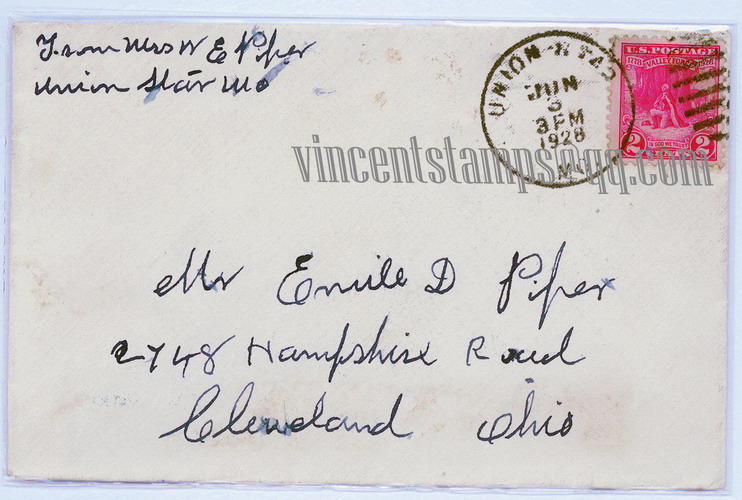 From Mrs W E Piper
Union Star Mo
UNION STAR
JUN
3
3 PM
1928
MO.
U.S. POSTAGE
1778 VALLEY FORGE 1928
IN GOD WE TRUST
2 2
vincentstamps@qq.com
Mr Emile D Piper
2748 Hampshire Road
Cleveland Ohio